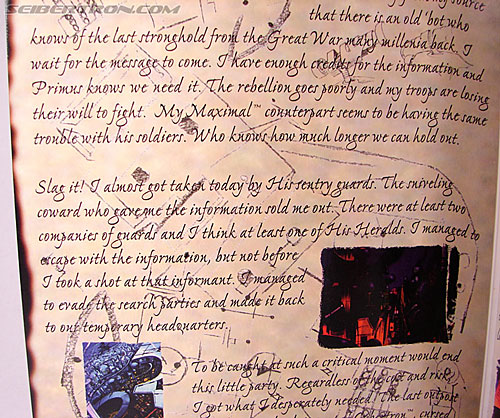 SEIBERTRON.COM
source
that there is an old 'bot who
knows of the last stronghold from the Great War many millenia back. I
wait for the message to come. I have enough credits for the information and
Primus knows we need it. The rebellion goes poorly and my troops are losing
their will to fight. My Maximal™ counterpart seems to be having the same
trouble with his soldiers. Who knows how much longer we can hold out.
Slag it! I almost got taken today by His sentry guards. The sniveling
coward who gave me the information sold me out. There were at least two
companies of guards and I think at least one of His Heralds. I managed to
escape with the information, but not before
I took a shot at that informant. I managed
to evade the search parties and made it back
to our temporary headquarters.
To be caught at such a critical moment would end
this little party. Regardless of the cost and risk,
I got what I desperately needed. The last outpost
™ cursed